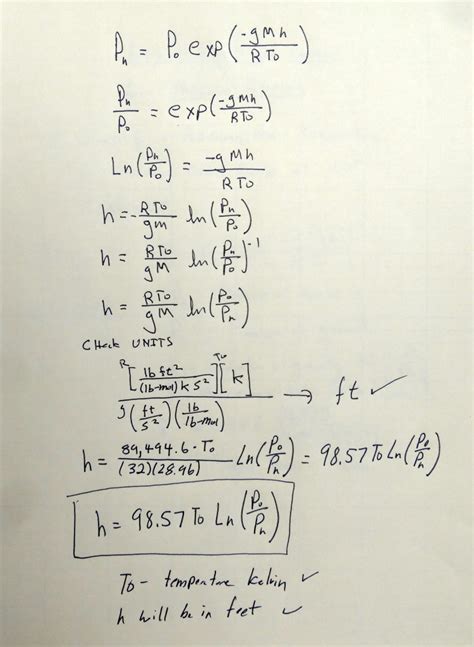 Pₕ = P₀ exp(-gMh / RT₀)
Pₕ/P₀ = exp(-gMh / RT₀)
Ln(Pₕ/P₀) = -gMh / RT₀
h = -RT₀/gm ln(Pₕ/P₀)
h = RT₀/gM ln(Pₕ/P₀)⁻¹
h = RT₀/gM ln(P₀/Pₕ)
CHeck UNITS
R[lb ft² / (lb-mol) k s²] T₀[k] / g(ft/s²)(lb/lb-mol) → ft ✓
h = 89,494.6 · T₀ / (32)(28.96) Ln(P₀/Pₕ) = 98.57 T₀ Ln(P₀/Pₕ)
h = 98.57 T₀ Ln(P₀/Pₕ)
To - temperature kelvin ✓
h will be in feet ✓